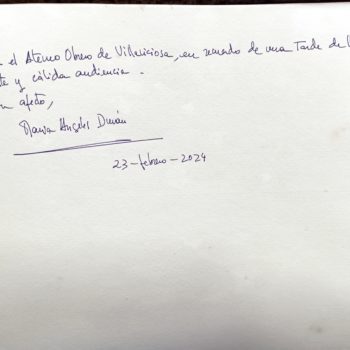 el Ateneo Obrero de Villaviciosa, en recuerdo de una Tarde de
y cálida audiencia.
afecto,
María Ángeles Durán
23-febrero-2024